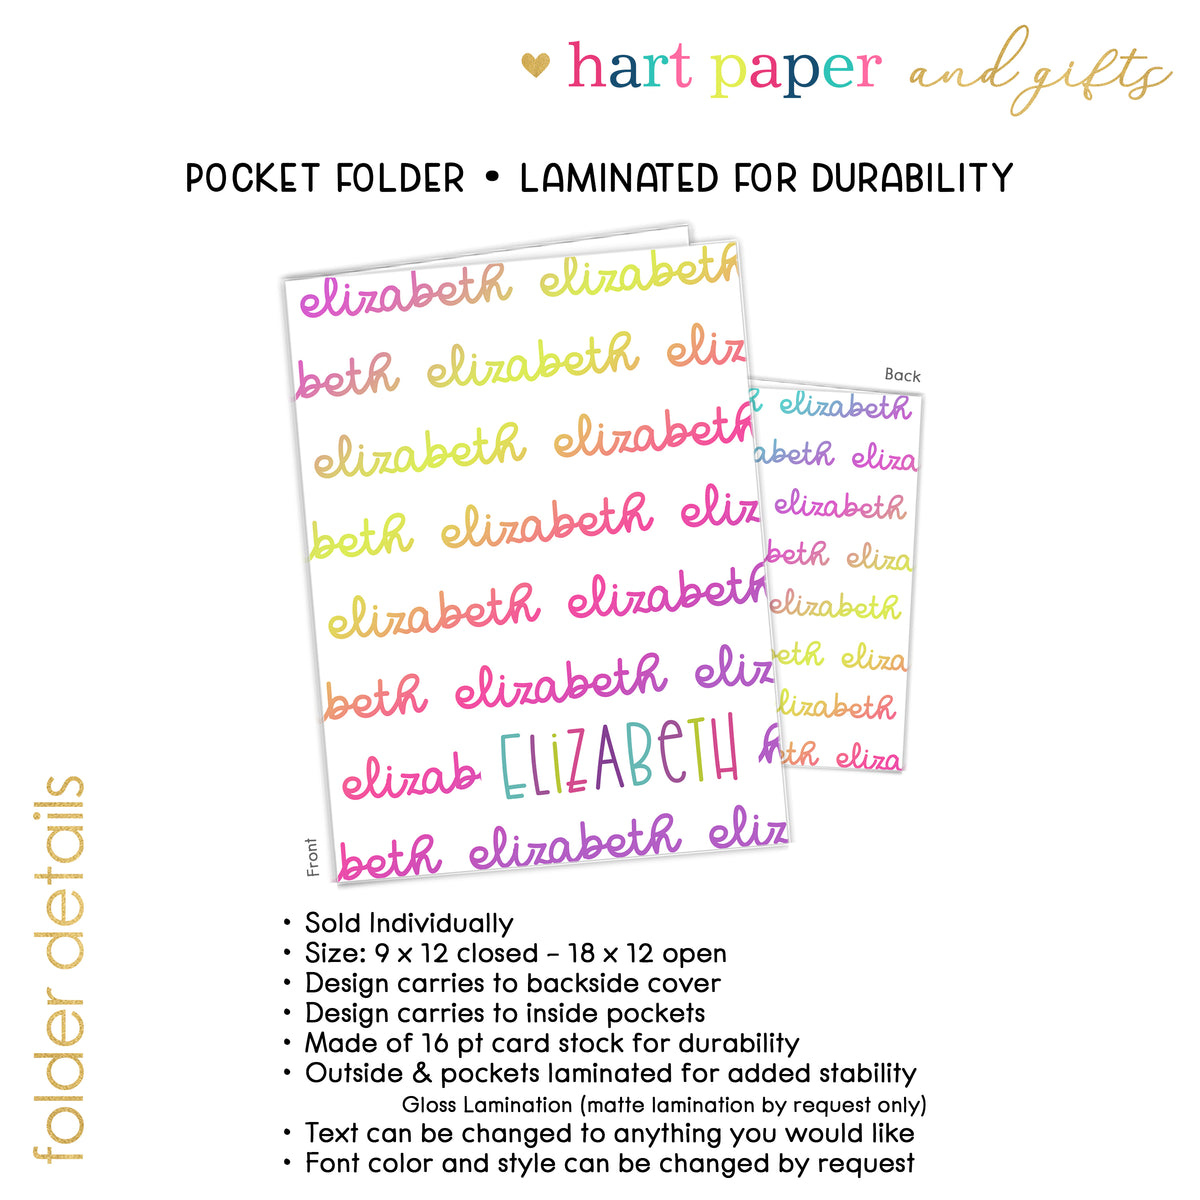 hart paper and gifts
POCKET FOLDER • LAMINATED FOR DURABILITY
elizabeth elizabeth
beth elizabeth eliz
elizabeth elizabeth
beth elizabeth eliz
elizabeth elizabeth
beth elizabeth eliz
elizab ELIZABETH h
beth elizabeth eliz
Front
Back
h elizabeth
abeth eliza
elizabeth
beth eliza
elizabeth
beth eliza
elizabeth
eth eliza
folder details
• Sold Individually
• Size: 9 x 12 closed - 18 x 12 open
• Design carries to backside cover
• Design carries to inside pockets
• Made of 16 pt card stock for durability
• Outside & pockets laminated for added stability
Gloss Lamination (matte lamination by request only)
• Text can be changed to anything you would like
• Font color and style can be changed by request